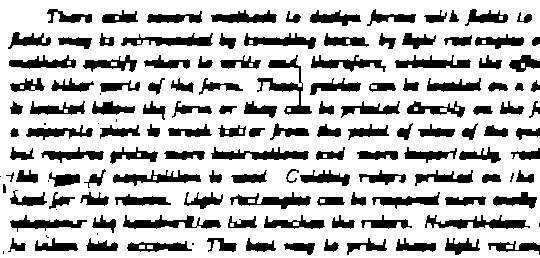 There exist several methods to design forms with fields to
fields may be surrounded by bounding boxes, by light rectangles
methods specify where to write and, therefore, minimize the
with other parts of the form. These guides can be located on a
is located below the form or they can be printed directly on the
a separate sheet is much better from the point of view of the
but requires giving more instructions and more importantly,
this type of acquisition is used. Guiding rulers printed on the
used for this reason. Light rectangles can be removed more easily
whenever the handwritten text touches the rulers. Nevertheless,
be taken into account: The best way to print these light